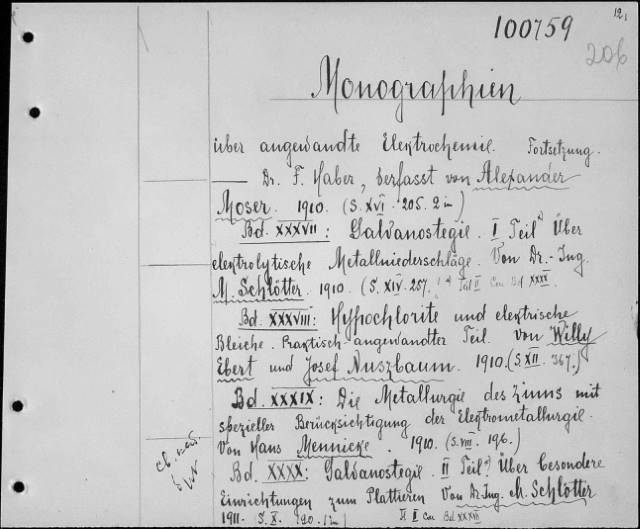 12,
100759
206
Monographien
über angewandte Elektrochemie. Fortsetzung.
— Dr. F. Haber, verfasst von Alexander
Moser. 1910. (S. XVI. 205. 2 in)
Bd. XXXVII: Galvanostegie. I Teil Über
elektrolytische Metallniederschläge. Von Dr.-Ing.
M. Schlötter. 1910. (S. XIV. 257. Teil II См. Bd. XXXX.
Bd. XXXVIII: Hypochlorite und elektrische
Bleiche. Praktisch-angewandter Teil. von Willy
Ebert und Josef Nuszbaum. 1910. (S. XII. 367.)
Bd. XXXIX: Die Metallurgie des Zinns mit
spezieller Berücksichtigung der Elektrometallurgie.
Von Hans Mennicke. 1910. (S. VIII. 196.)
Bd. XXXX: Galvanostegie. II Teil Über besondere
Einrichtungen zum Plattieren Von Dr. Ing. M. Schlötter
1911. S. X. I См. Bd. XXXVII